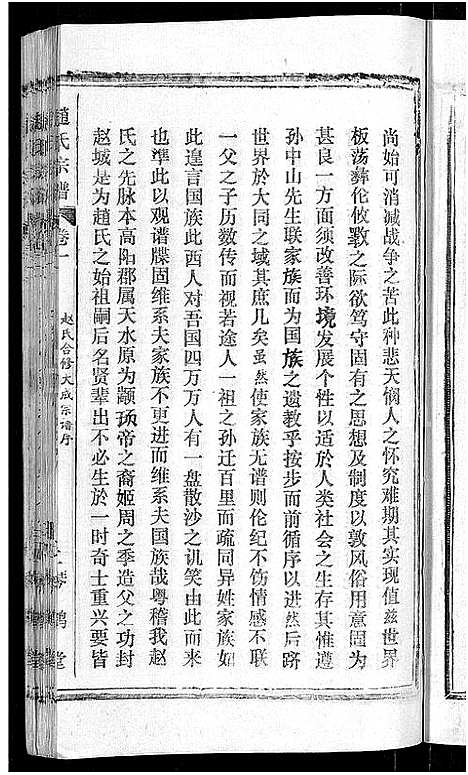 尚始可消减战争之苦此种悲天悯人之怀究难期其实现值兹世界
板荡彝伦攸斁之际欲笃守固有之思想及制度以敦风俗用意固为
甚良一方面须改善环境发展个性以适於人类社会之生存其惟遵
孙中山先生联家族而为国族之遗教乎按步而前循序以进然后跻
世界於大同之域其庶几矣虽然使家族无谱则伦纪不饬情感不联
一父之子历数传而视若途人一祖之孙迁百里而疏同异姓家族如
此遑言国族此西人对吾国四万万人有一盘散沙之讥笑由此而来
也準此以观谱牒固维系夫家族不更进而维系夫国族哉粤稽我赵
氏之先脉本高阳郡属天水原为颛顼帝之裔姬周之季造父之功封
赵城是为趙氏之始祖嗣后名贤辈出不必生於一时奇士重兴要皆
趙氏宗谱 卷一
赵氏合修大成宗谱序
琴鹤堂